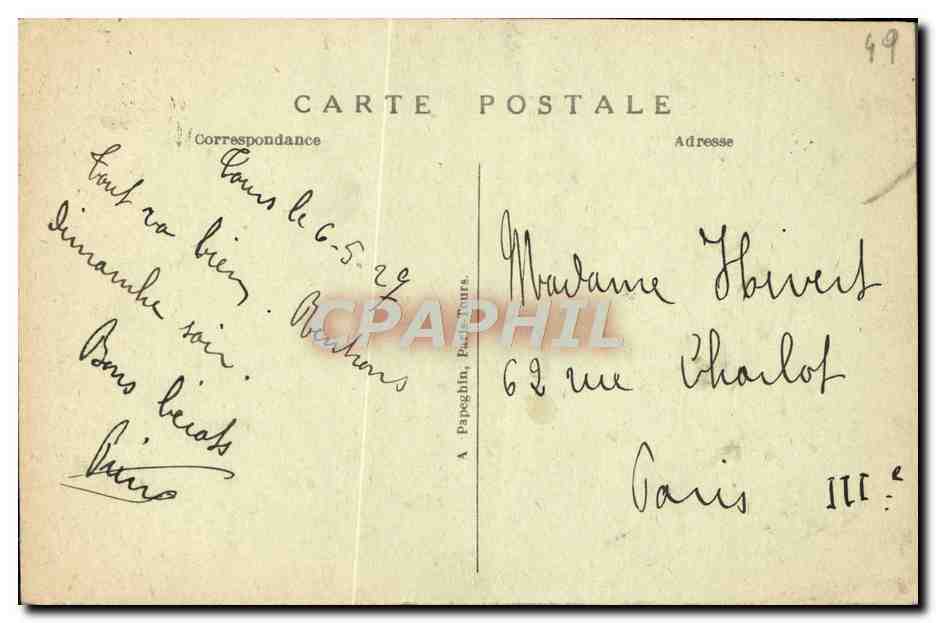 49
CARTE POSTALE
Correspondance
Adresse
Tours le 6-5.29
Tout va bien. Rentrons
Dimanche soir.
Bons bécots
Pierre
A Papeghin, Paris-Tours.
Madame Hivert
62 rue Charlot
Paris IIIe
CPAPHIL